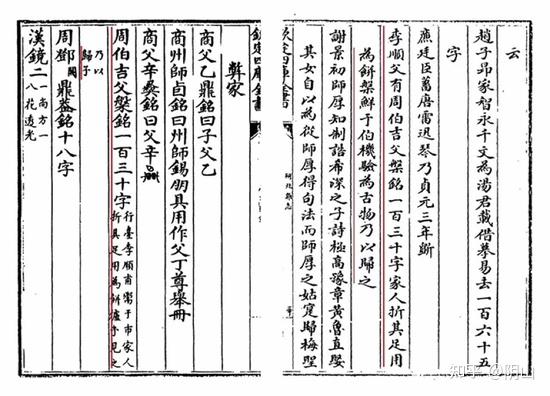 云
趙子昂家智永千文為湯君載借摹易去一百六十五
字
廉廷臣蓄唐雷迅琴乃貞元三年斵
李順父有周伯吉父槃銘一百三十字家人折其足用
為餅槃鮮于伯機驗為古物乃以歸之
謝景初師厚知制誥希深之子詩極高豫章黄魯直娶
其女自以為從師厚得句法而師厚之姑寔歸梅聖
欽定四庫全書
研北雜志
彝家
商父乙鼎銘曰子父乙
商州師卣銘曰州師錫朋貝用作父丁尊舉冊
商父辛彝銘曰父辛
周伯吉父槃銘一百三十字行臺李順甫鬻于市家人折其足用為餅爐予見之
乃以歸予
周鄧闕鼎蓋銘十八字
漢鏡二一尚方一八花透光
知乎 @阴山